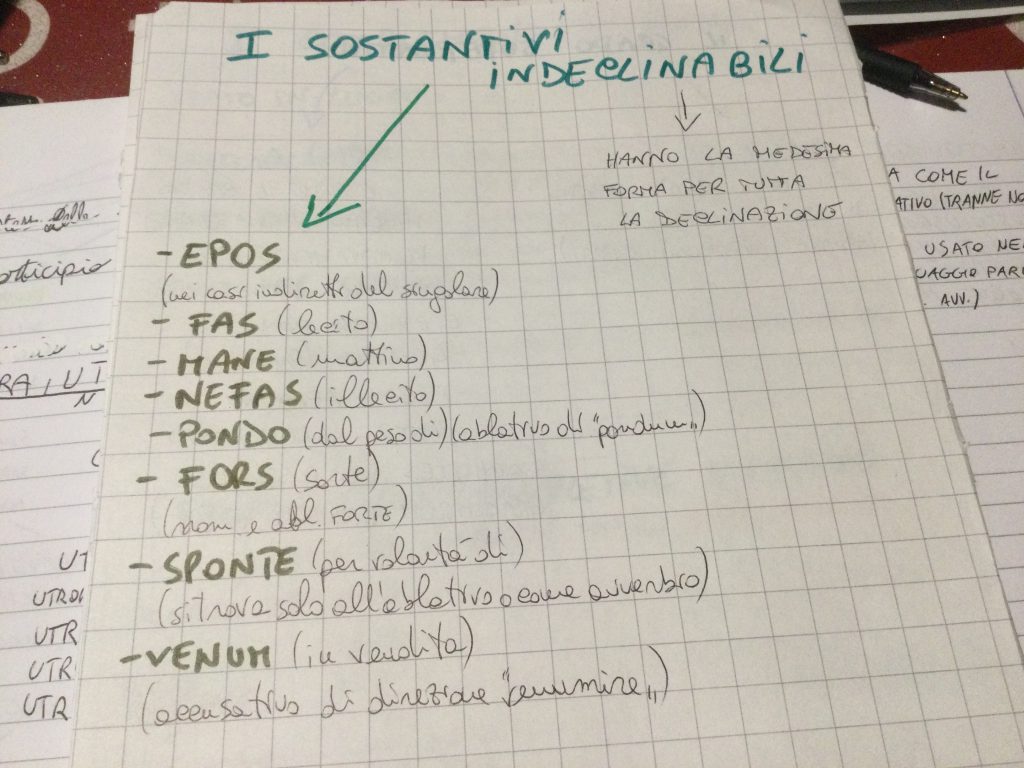 I SOSTANTIVI
INDECLINABILI
HANNO LA MEDESIMA
FORMA PER TUTTA
LA DECLINAZIONE
- EPOS
(nei casi indiretti del singolare)
- FAS (lecito)
- MANE (mattino)
- NEFAS (illecito)
- PONDO (dal peso di) (ablativo di "pondum")
- FORS (sorte)
(nom e abl. FORTE)
- SPONTE (per volontà di)
(si trova solo all'ablativo o come avverbio)
- VENUM (in vendita)
(accusativo di direzione
A COME IL
ATIVO (TRANNE NO
USATO NE
UAGGIO PAR
AVV.)
RA, UT
N
UT
UTR
UTR
UTR